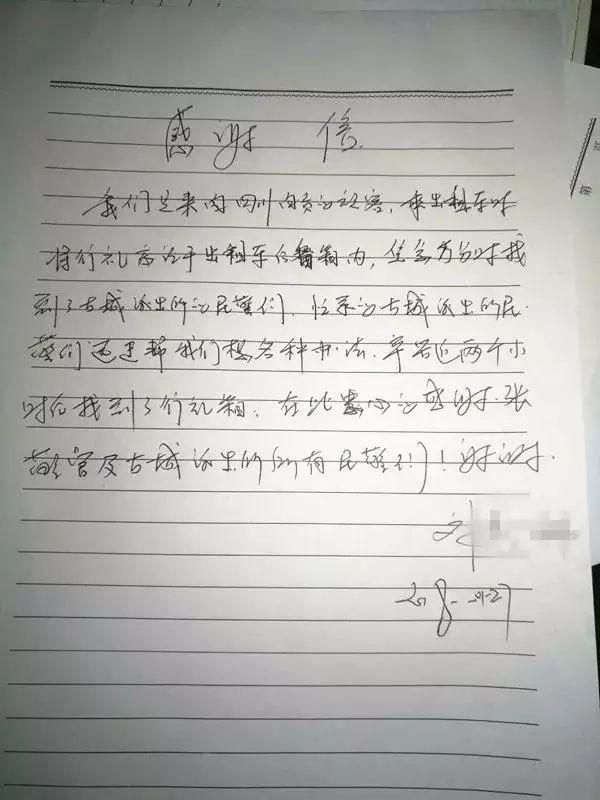 感谢信
我们是来自四川自贡的旅客，乘出租车时
将行礼忘记于出租车后备箱内，焦急万分时找
到了古城派出所的民警们，恰系的古城派出所民
警们迅速帮我们想各种办法，辛苦近两个小
时后找到了行礼箱，在此衷心的感谢张
警官及古城派出所所有民警们！谢谢
刘
2018-01-27
第 页